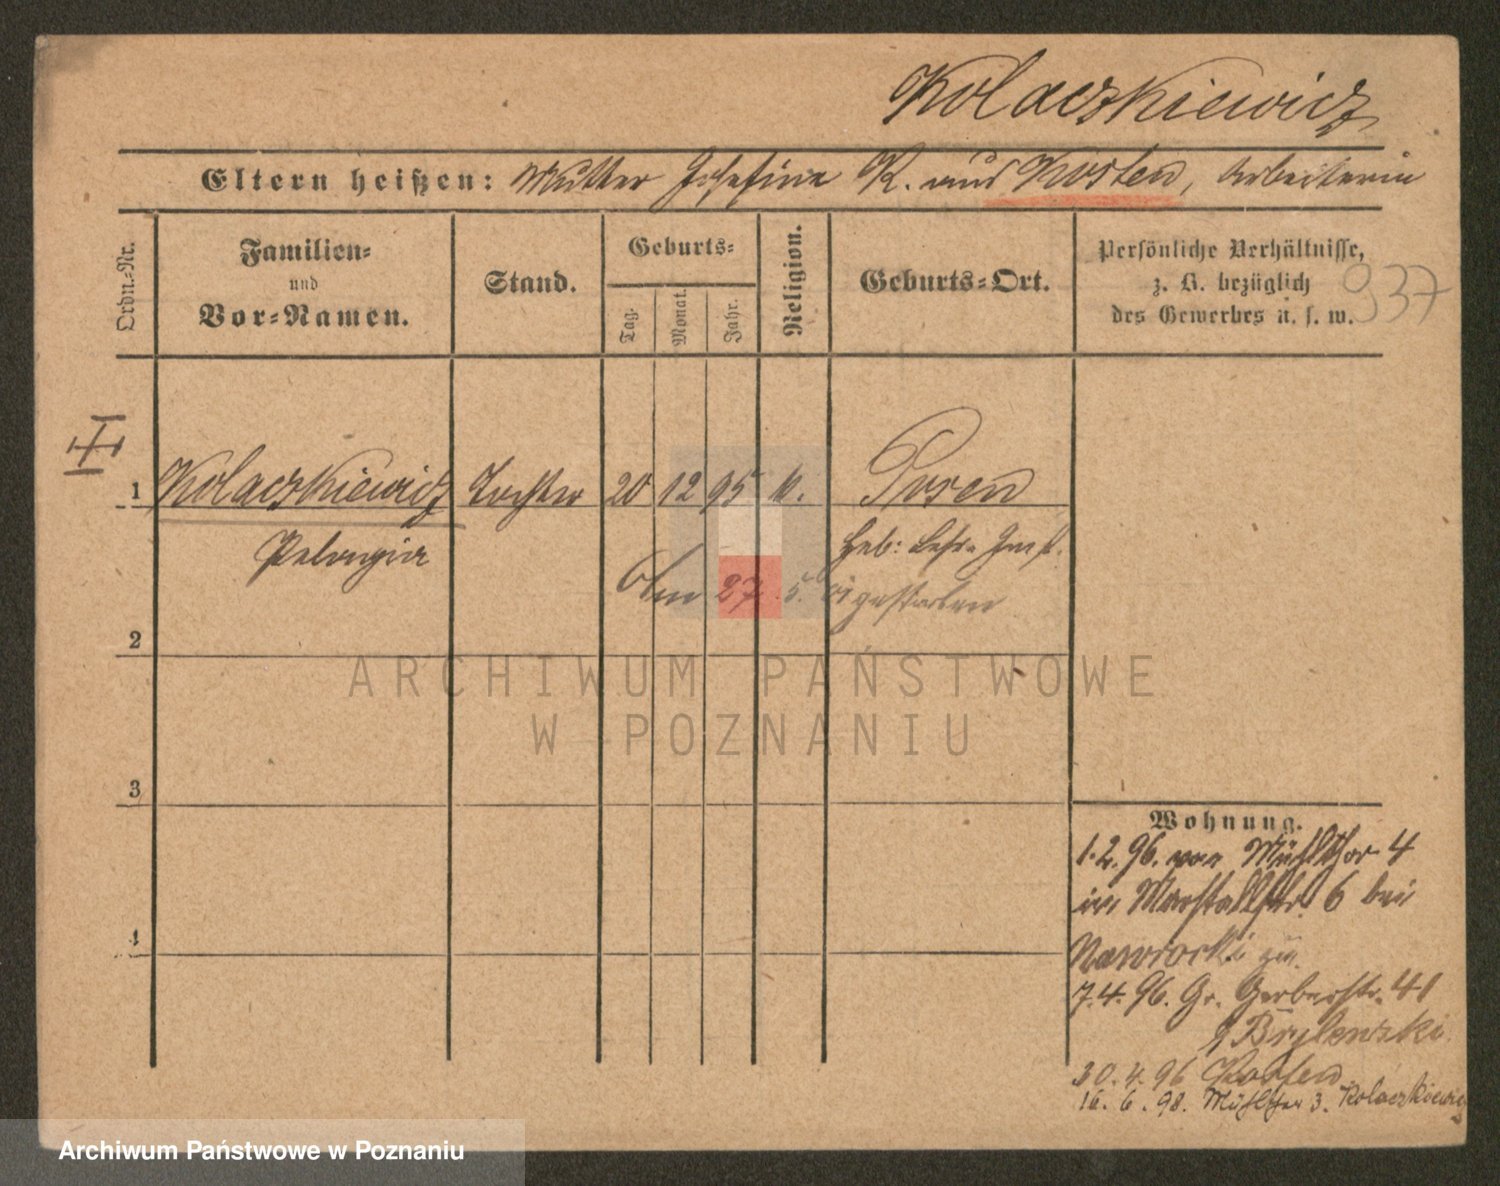 Kolaczkiewicz
Eltern heißen: Mutter Josefine K. aus Kosten, Arbeiterin
Ordn.-Nr.
Familien-
und
Vor-Namen.
Stand.
Geburts-
Tag.
Monat.
Jahr.
Religion.
Geburts-Ort.
Persönliche Verhältnisse,
z. B. bezüglich
des Gewerbes u. s. w.
937
1 Kolaczkiewicz Tochter 20 12 95 k. Posen
Pelagia
Heb: Lehr-Inst.
27. 5. gestorben
2
3
4
ARCHIWUM PAŃSTWOWE
W POZNANIU
Wohnung.
1.2.96. von Mühlthor 4
in Marstallstr. 6 bei
Nawrocki
7.4.96. Gr. Gerberstr. 41
Brylewski.
30.4.96 Kosten
16.6.98. Mühlthor 3. Kolaczkiewicz
Archiwum Państwowe w Poznaniu